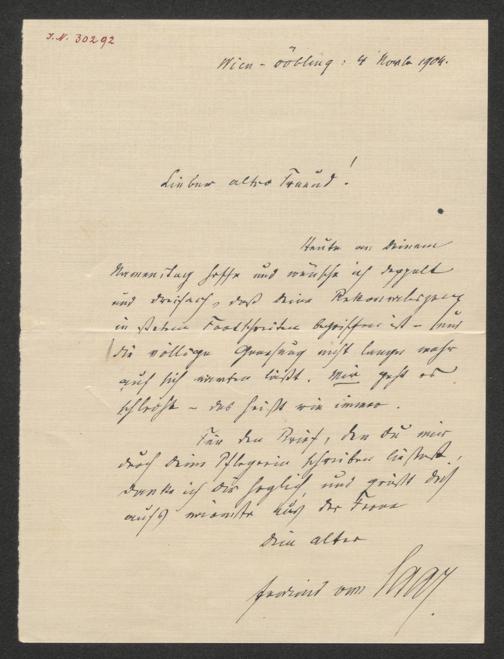 I.N. 30292
Wien-Döbling: 4 Novbr 1904.
Lieber alter Freund!
Heute an Deinem
Namenstag hoffe und wünsche ich doppelt
und dreifach, daß Deine Rekonvaleszenz
in stetem Fortschreiten begriffen ist – und
die völlige Genesung nicht lange mehr
auf sich warten läßt. Mir geht es
schlecht – das heißt wie immer.
Für den Brief, den Du mir
durch Deine Pflegerin schreiben ließest,
danke ich Dir herzlich und grüße Dich
aufs wärmste aus der Ferne
Dein alter
Ferdinand von Saar.